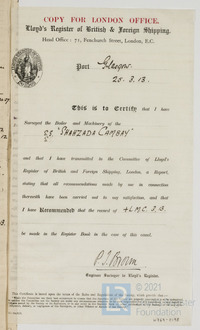 COPY FOR LONDON OFFICE.
Lloyd's Register of British & Foreign Shipping.
Head Office - 71, Fenchurch Street, London, E.C.
Port Glasgow
25. 3. 13.
This is to Certify that I have
Surveyed the Boiler and Machinery of the
S.S. "SHAHZADA CAMBAY"
and that I have transmitted to the Committee of Lloyd's
Register of British and Foreign Shipping, London, a Report,
stating that all recommendations made by me in connection
therewith have been carried out to my satisfaction, and that
I have Recommended that the record of + L.M.C. 3, 13.
be made in the Register Book in the case of this vessel.
Engineer Surveyor to Lloyd's Register.
© 2021
Register
Foundation